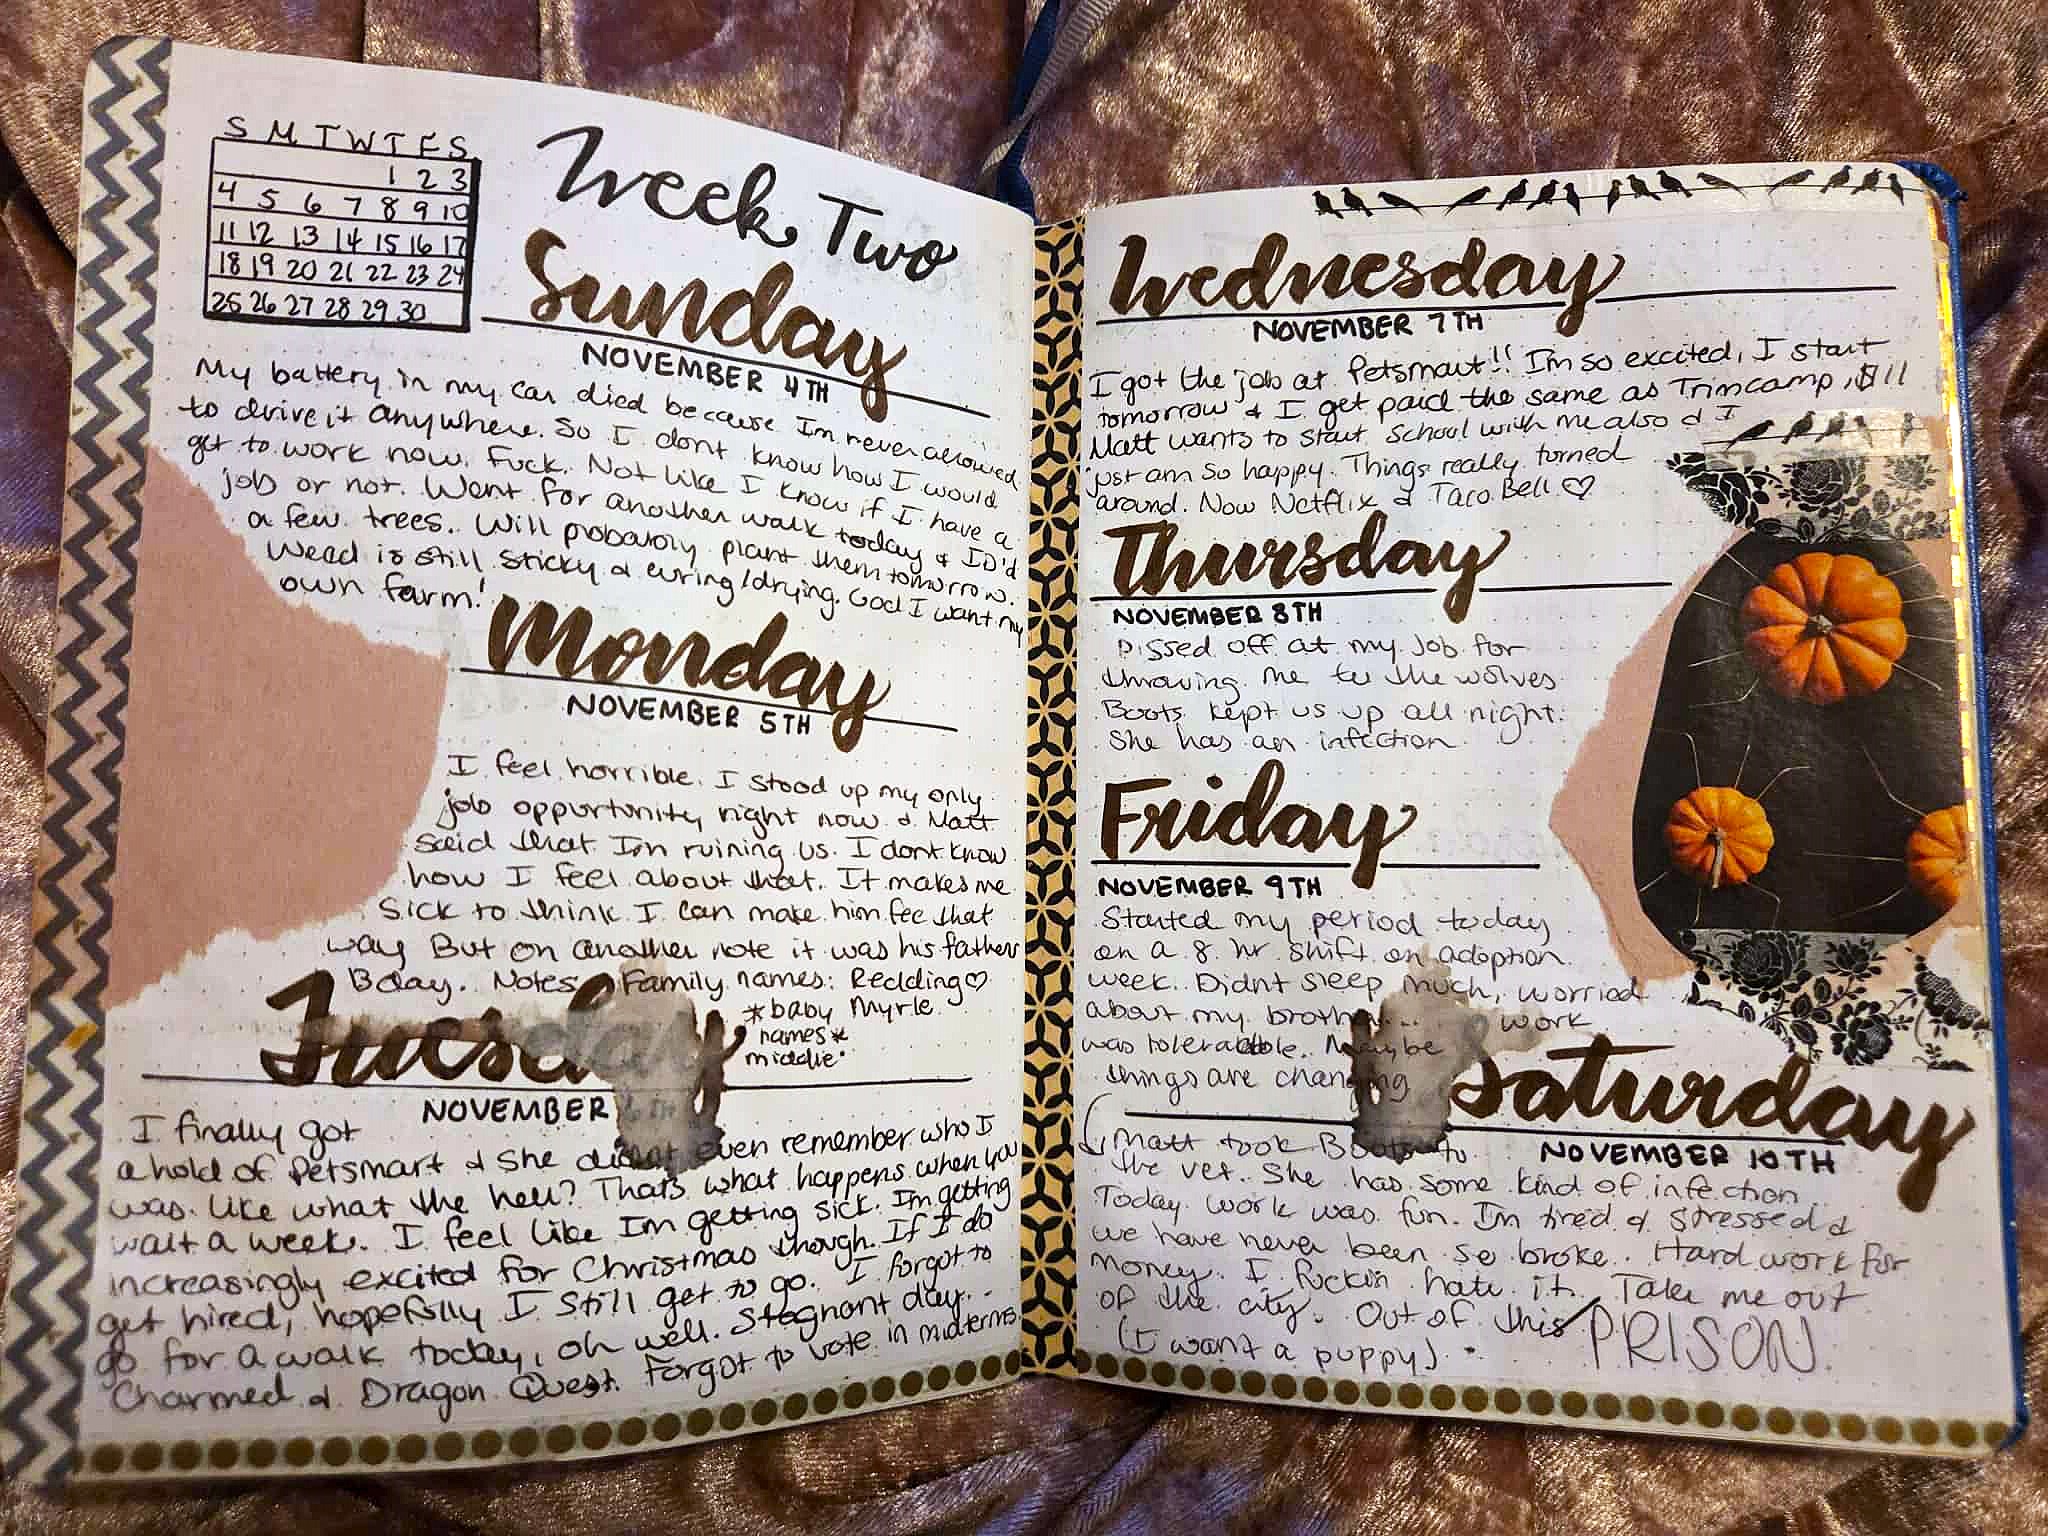 S M T W T F S
1 2 3
4 5 6 7 8 9 10
11 12 13 14 15 16 17
18 19 20 21 22 23 24
25 26 27 28 29 30
Week Two
Sunday
NOVEMBER 4TH
My battery in my car died because I'm never allowed
to drive it anywhere. So I dont know how I would
get to work now. Fuck. Not like I know if I have a
job or not. Went for another walk today & ID'd
a few trees. Will probably plant them tomorrow.
Weed is still sticky & curing/drying. God I want my
own farm!
Monday
NOVEMBER 5TH
I feel horrible. I stood up my only
job oppurtunity right now & Matt
said that I'm ruining us. I dont know
how I feel about that. It makes me
sick to think I can make him fee that
way But on another note it was his fathers
Bday. Notes Family names: Redding♡
*baby Myrle
names*
middle
Tuesday
NOVEMBER 6TH
I finally got
a hold of Petsmart & she didnt even remember who I
was. Like what the hell? Thats what happens when you
wait a week. I feel like I'm getting sick. I'm getting
increasingly excited for Christmas though. If I do
get hired, hopefully I still get to go. I forgot to
go for a walk today, oh well. Stagnant day..
Charmed & Dragon Quest. Forgot to vote in midterms
Wednesday
NOVEMBER 7TH
I got the job at Petsmart!! I'm so excited, I start
tomorrow & I get paid the same as Trimcamp, $11
Matt wants to start school with me also & I
just am so happy. Things really turned
around. Now Netflix & Taco Bell ♡
Thursday
NOVEMBER 8TH
Pissed off at my job for
throwing me to the wolves
Boots kept us up all night.
She has an infection
Friday
NOVEMBER 9TH
Started my period today
on a 8 hr shift on adoption
week. Didnt sleep much, worried
about my brother... work
was tolerable. Maybe
things are changing
Saturday
NOVEMBER 10TH
Matt took Boots to
the vet. She has some kind of infection
Today work was fun. I'm tired & stressed &
we have never been so broke. Hard work for
money. I fuckin hate it. Take me out
of the city. Out of this PRISON
(I want a puppy)